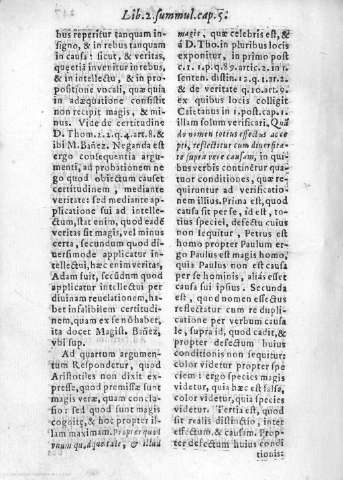 Lib. 2. summul. cap. 5.
bus reperitur tanquam in
signo, & in rebus tanquam
in causa: sicut, & veritas,
quæ etiā invenitur in rebus,
& in intellectu, & in pro-
positione vocali, quæ quia
in adæquatione consistit
non recipit magis, & mi-
nus. Vide de certitudine
D. Thom. 2. 2. q. 4. art. 8. &
ibi M. Bañez. Neganda est
ergo consequentia argumē
ti, ad probationem ne
go quod obiectum causet
certitudinem, mediante
veritate: sed mediante ap
plicatione sui ad intelle-
ctum, stat enim, quod eadē
veritas sit magis, vel minus
certa, secundum quod di-
versimode applicatur in-
tellectui, hæc enim veritas,
Adam fuit, secūdum quod
applicatur intellectui per
divinam reuelationem, ha-
bet infalibilem certitudi-
nem, quam ex se nō haber,
ita docet Magist. Bañez,
vbi sup.
Ad quartum argumen-
tum Respondetur, quod
Aristotiles non dixit ex-
presse, quod premissæ sunt
magis veræ, quam conclu-
sio: sed quod sunt magis
cognitę, & hoc propter il-
lam maximam. Propter quod
vnum quodque tale, & illud
magis, quæ celebris est, &
à D. Tho. in pluribus locis
exponitur, in primo post
c. 1. 1. p. q. 89. artic. 2. in 1.
senten. distin. 12. q. 1. ar. 2.
& de veritate q. 10. art. 9.
ex quibus locis colligit
Caietanus in 1. post. quin.
illam solum verificari. Quā
do nomen totius effectus acce
pti, reflectitur cum diversita-
te supra vere causam, in qui-
bus verbis continētur qua-
tuor conditiones, quæ re-
quiruntur ad verificatio-
nem illius. Prima est, quod
causa sit per se, id est, to-
tius speciei, defectu cuius
non sequitur, Petrus est
homo propter Paulum er-
go Paulus est magis homo,
quia Paulus non est causa
per se hominis, aliàs esset
causa sui ipsius. Secunda
est, quod nomen effectus
reflectatur cum re dupli-
catione per verbum causa
le, supra id, quod cadit, &
propter defectum huius
conditionis non sequitur:
color videtur propter spe
ciem: ergo species magis
videtur, quia hæc est falsa,
color videtur, quia species
videtur. Tertia est, quod
sit realis distinctio, inter
effectum, & causam. Prop-
ter defectum huius condi
tionis: